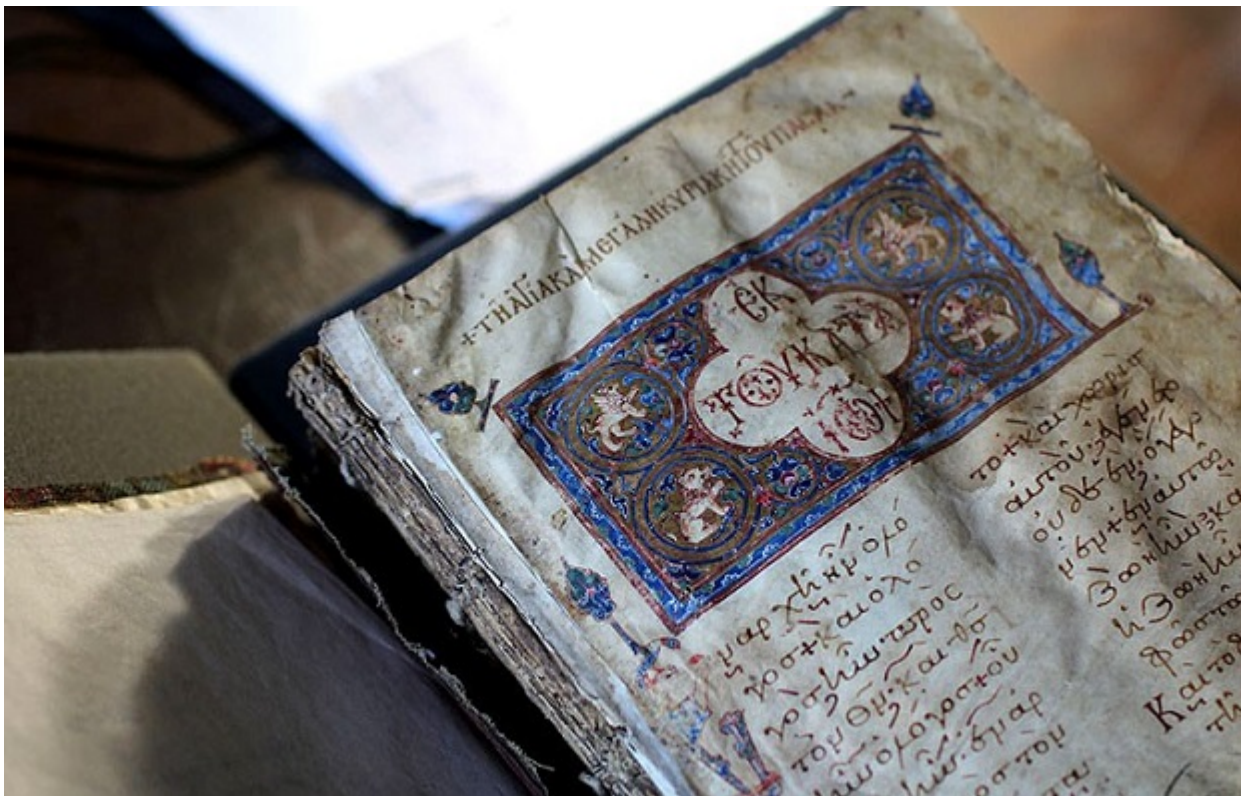 + ΤΗ ΑΓΙΑ ΚΑΙ ΜΕΓΑΛΗ ΚΥΡΙΑΚΗ ΤΟΥ ΠΑΣΧΑ
ΕΚ
ΤΟΥ ΚΑΤΑ
ΙΩ
ν ἀρχῆ ἦν ὁ λό
γος + καὶ ὁ λό
γος ἦν πρὸς
τὸν θν καὶ θς
ἦν ὁ λόγος + οὗ
ἦν ἐν ἀρ
τὸν
τα + καὶ χωρὶς
αὐτοῦ
οὐδὲ ἓν ὃ
ἐν αὐτῶ
ζωὴ ἦν + κα
ἡ ζωὴ ἦν
φῶς τῶ
Καὶ τὸ
τῆ